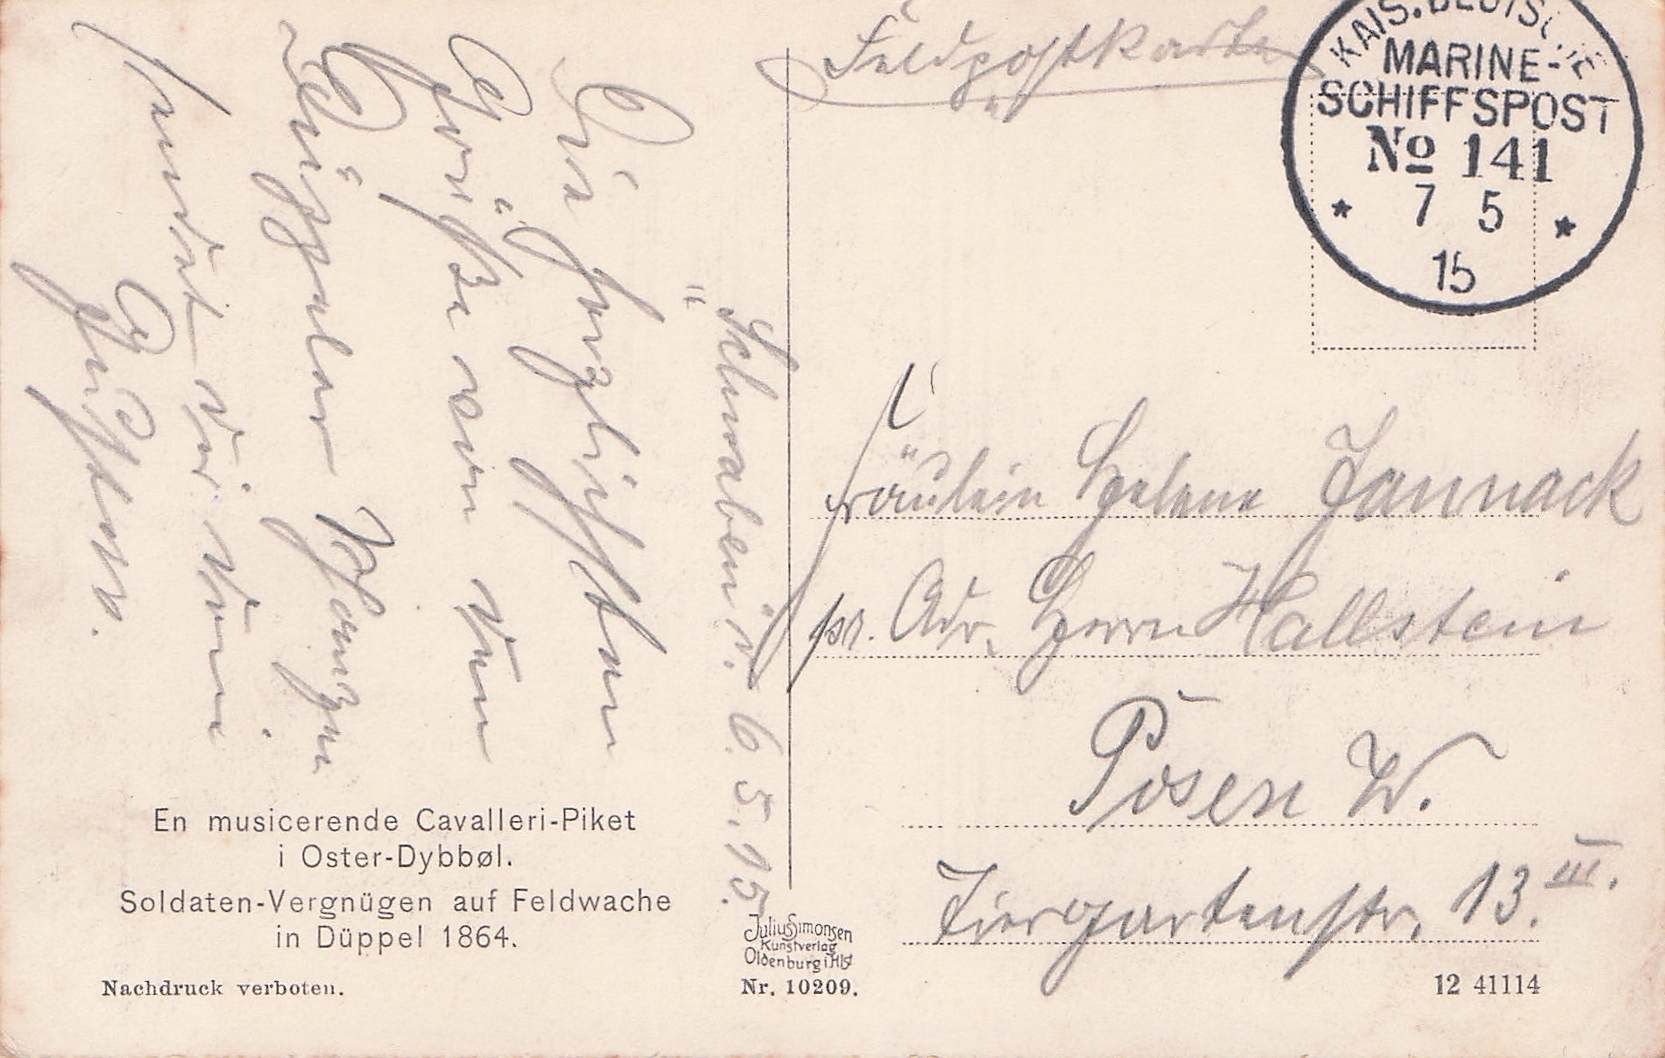 Feldpostkarte
KAIS. DEUTSCHE
MARINE-
SCHIFFSPOST
No 141
* 7 5 *
15
"Schwaben", d. 6.5.15.
Die herzlichsten
Grüße von den
Düppeler Schanzen
sendet dir dein
Gustav.
Fräulein Helene Jannack
pr. Adr. Herrn Hallstein
Posen W.
Tiergartenstr. 13. III.
En musicerende Cavalleri-Piket
i Oster-Dybbøl.
Soldaten-Vergnügen auf Feldwache
in Düppel 1864.
Nachdruck verboten.
Julius Simonsen
Kunstverlag
Oldenburg i Hlst
Nr. 10209.
12 41114